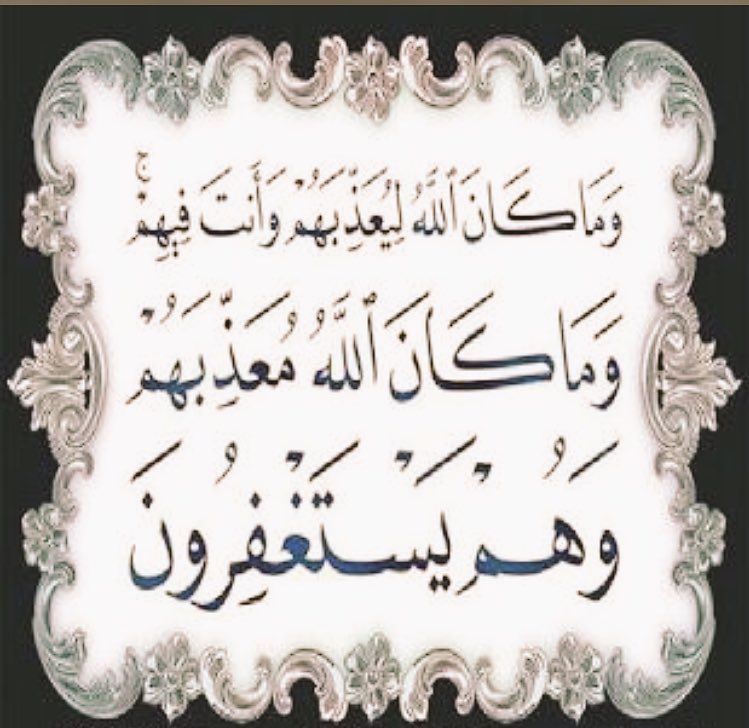 وَمَا كَانَ ٱللَّهُ لِيُعَذِّبَهُمْ وَأَنتَ فِيهِمْ ۚ
وَمَا كَانَ ٱللَّهُ مُعَذِّبَهُمْ
وَهُمْ يَسْتَغْفِرُونَ